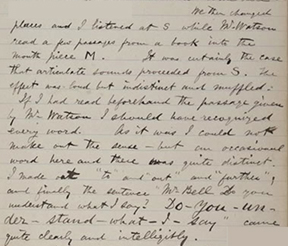 We then changed
places and I listened at S while Mr. Watson
read a few passages from a book into the
mouth piece M. It was certainly the case
that articulate sounds proceeded from S. The
effect was loud but indistinct and muffled.
If I had read beforehand the passage given
by Mr. Watson I should have recognized
every word. As it was I could not
make out the sense - but an occasional
word here and there was quite distinct.
I made out "to" and "out" and "further";
and finally the sentence "Mr. Bell Do you
understand what I say? Do-you-un-
der-stand-what-I-say" came
quite clearly and intelligibly.